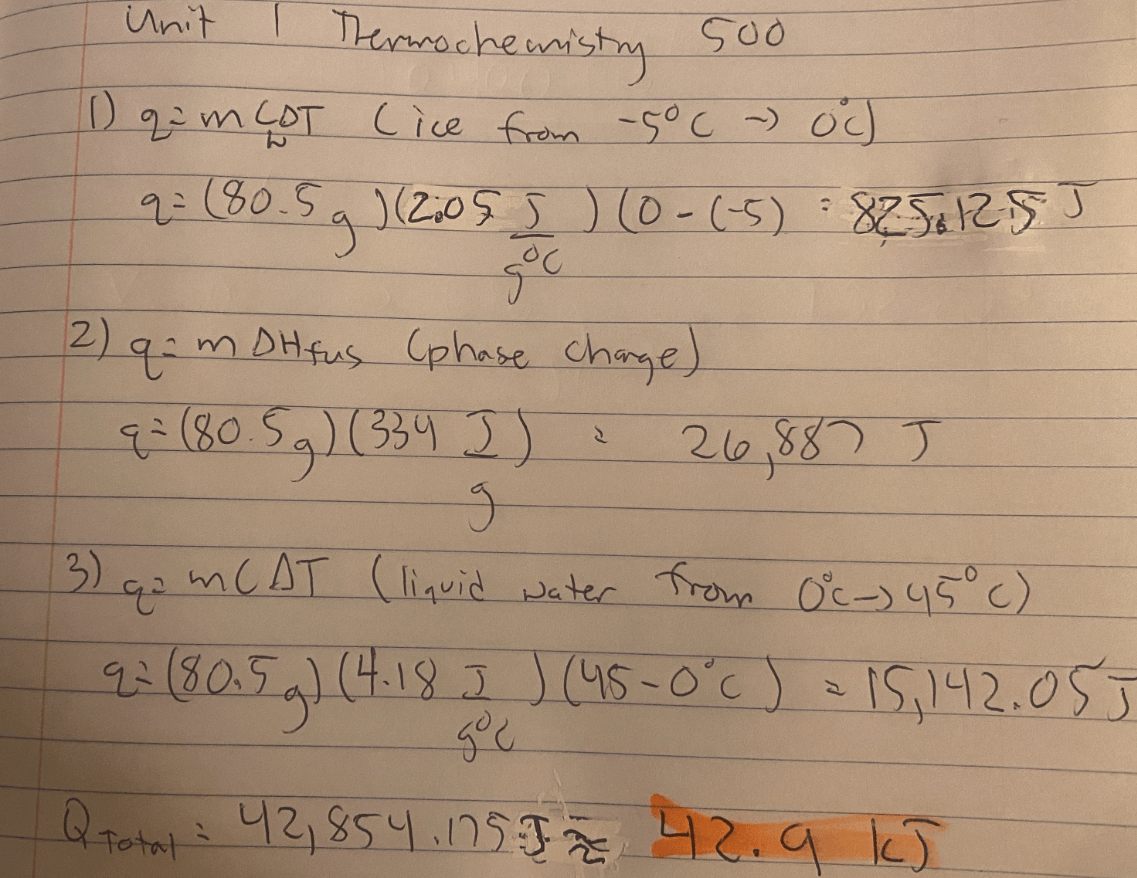 Unit 1 Thermochemistry 500
1) q = mCΔT (ice from -5°C → 0°C)
q = (80.5g)(2.05 J/g°C)(0-(-5) = 825.125 J
2) q = mΔHfus (phase change)
q = (80.5g)(334 J/g) = 26,887 J
3) q = mCΔT (liquid water from 0°C → 45°C)
q = (80.5g)(4.18 J/g°C)(45-0°C) = 15,142.05 J
Q Total = 42,854.175 J ≈ 42.9 kJ